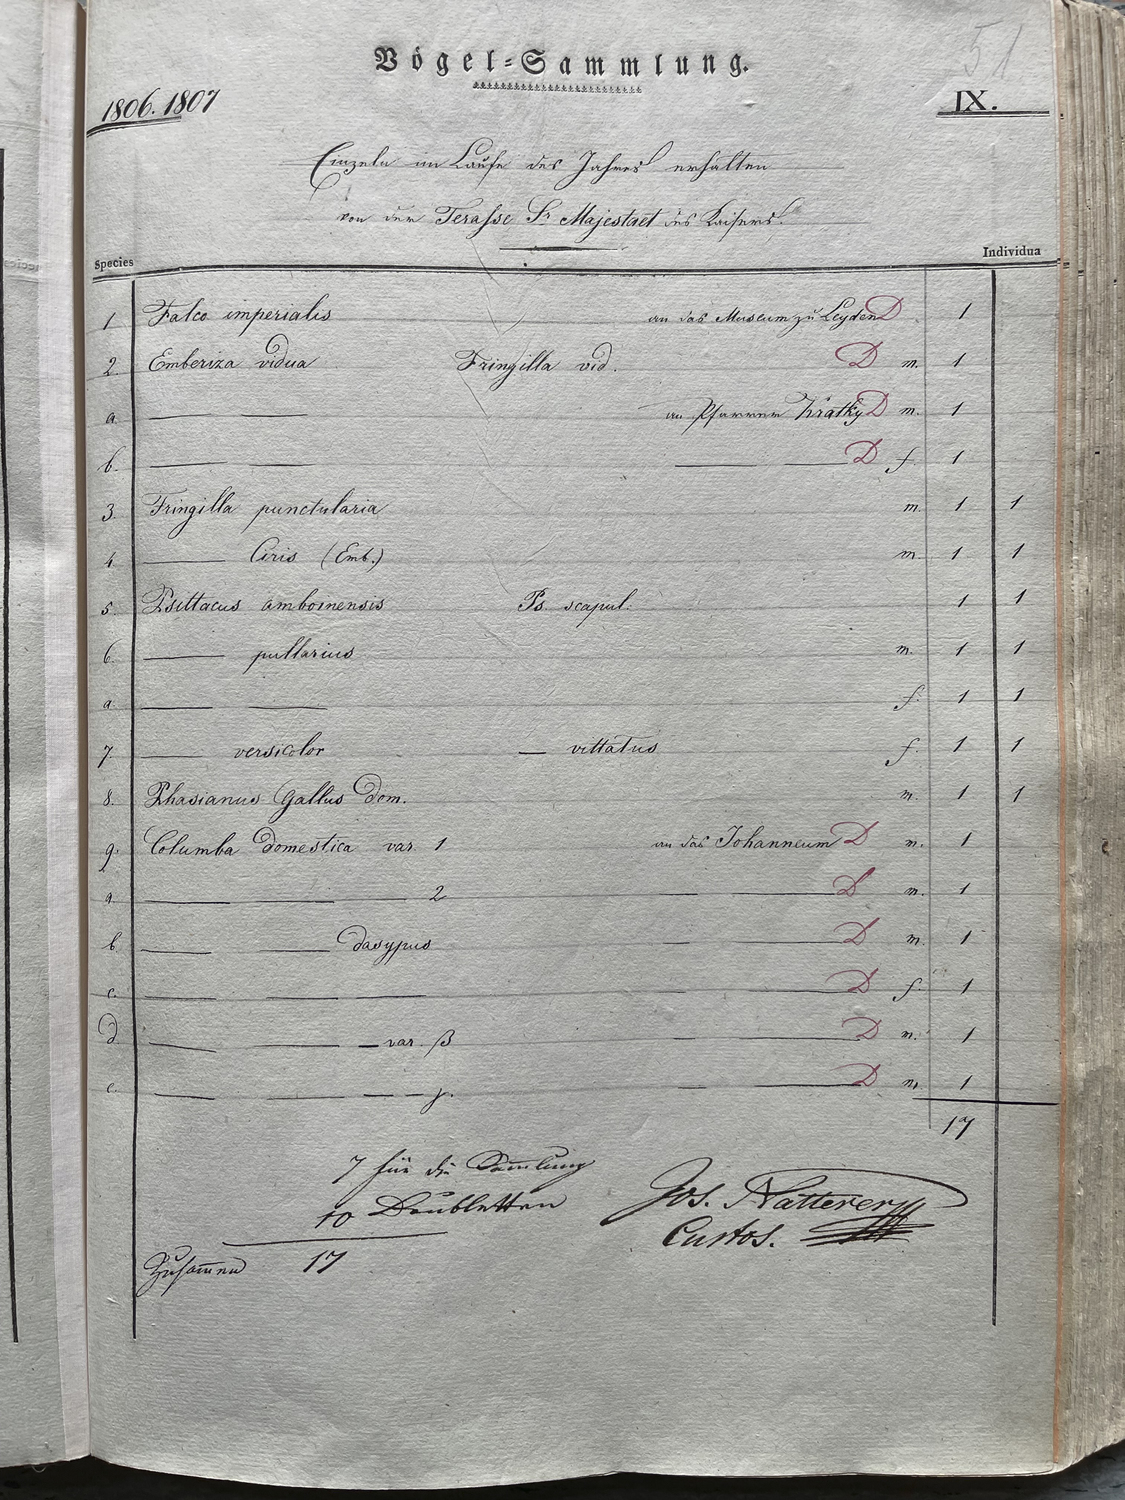 51
Vögel=Sammlung.
1806. 1807 IX.
Einzeln im Laufe des Jahres erhalten
von der Terasse Sr Majestaet des Kaisers.
Species Individua
1 Falco imperialis an das Museum zu Leyden D 1
2 Emberiza vidua Fringilla vid. D m. 1
a. — — an Pfarrer Kratky D m. 1
b. — — — — D f. 1
3. Fringilla punctularia m. 1 1
4. — Ciris (Emb.) m. 1 1
5. Psittacus amboinensis Ps. scapul. 1 1
6. — pullarius m. 1 1
a. — — f. 1 1
7. — versicolor — vittatus f. 1 1
8. Phasianus Gallus dom. m. 1 1
9. Columba domestica var. 1 an das Johanneum D m. 1
a — — — 2 — — D m. 1
b — — dasypus — — D m. 1
c. — — — — — — D f. 1
d — — — var. β — — D m. 1
e. — — — — γ. — — D m. 1
17
7 für die Sammlung
10 Doubletten
Zusammen 17
Jos. Natterer
Custos.